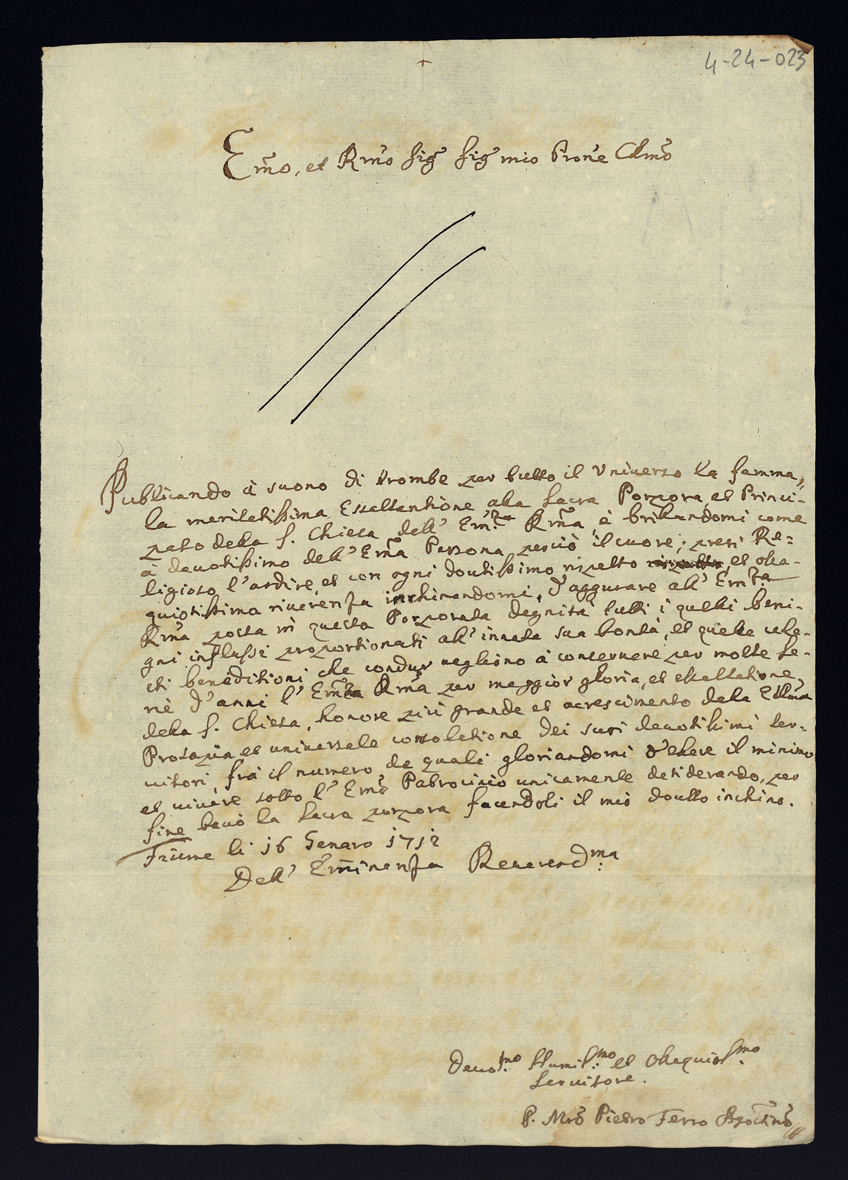 4-24-023
Em̃o, et Rm̃o Sig̃ Sig̃ mio Pron̄e Colm̃o
Publicando à suono di trombe per tutto il Universo la famma,
la meritatissima Essaltantione alla Sacra Porpora et Princi-
pato della S. Chiesa dell' Em.za Rm̃a à brillandomi come
à devotissimo dell' Em̃a Persona perciò il cuore; presi Re-
ligioso l'ardire, et con ogni douttissimo rispetto et osse-
quiosissima riverenza inchinandomi, d'aggurare all' Em̃za
Rm̃a posta in questa Porporata degnità tutti i quelli beni-
gni influssi proportionati all' innata sua bontà, et quelle cele-
sti beneditioni che condur vogliono à conservare per molte se-
rie d'anni l' Em̃za Rm̃a per maggior gloria, et essaltatione
della S. Chiesa, honore più grande et acrescimento della Ecc̃ma
Prosapia, et universale consolatione dei suoi devotissimi ser-
vitori, frà il numero de quali gloriandomi d'essere il minimo
et vivere sotto l' Em̃o Patrocinio unicamente desiderando, per
fine baciò la Sacra porpora facendoli il mio doutto inchino.
Fiume li 16 Genaro 1712
Dell' Em̃inenza Reverendma
Devot.mo Humil.mo et Obsequios.mo
Servitore.
P. Mrõ Pietro Ferro Agostinõ